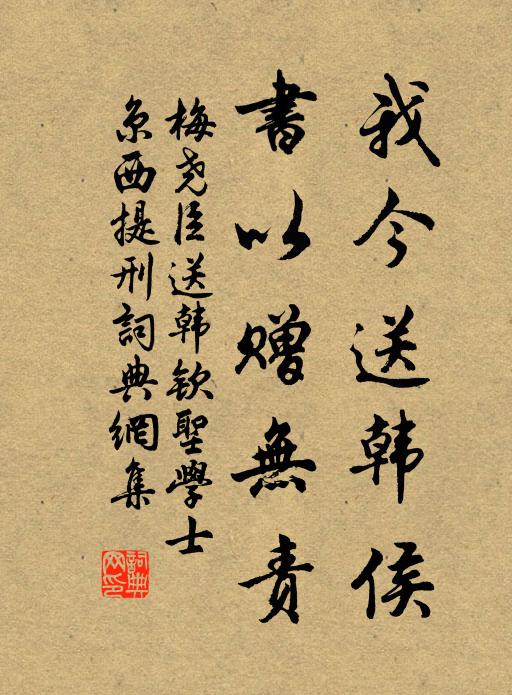 我今送韩侯
書以赠無责
梅尧臣送韩钦聖學士
京西提刑詞典網集
詞典网印